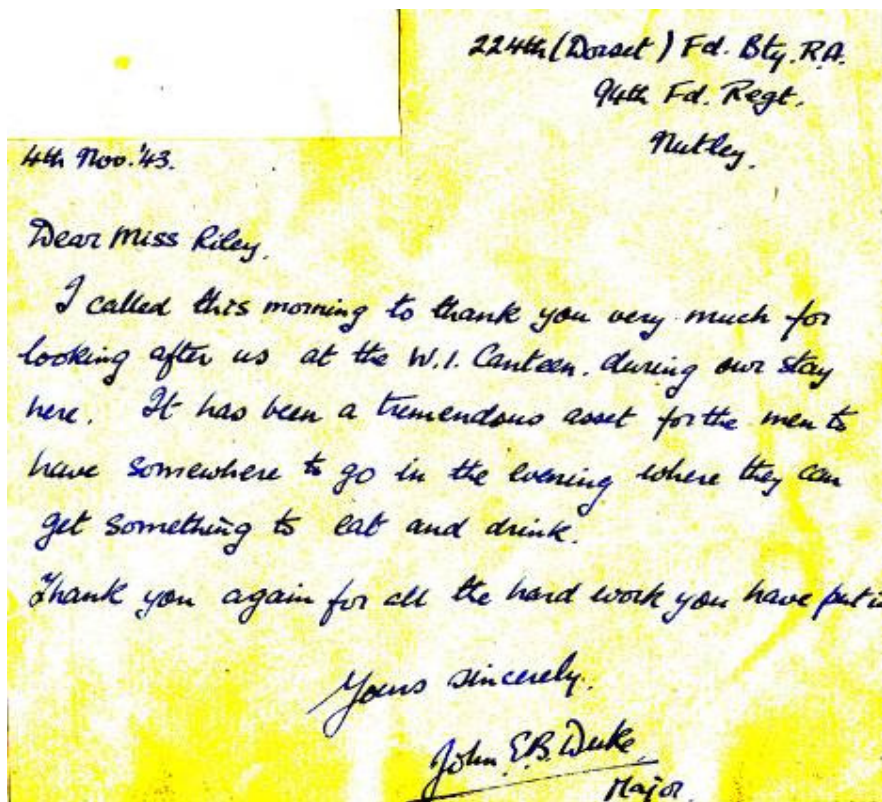 224th (Dorset) Fd. Bty. R.A.
94th Fd. Regt.
Nutley.
4th Nov. '43.
Dear Miss Riley,
I called this morning to thank you very much for
looking after us at the W.I. Canteen, during our stay
here. It has been a tremendous asset for the men to
have somewhere to go in the evening where they can
get something to eat and drink.
Thank you again for all the hard work you have put in
Yours sincerely,
John E.B. Duke,
Major.